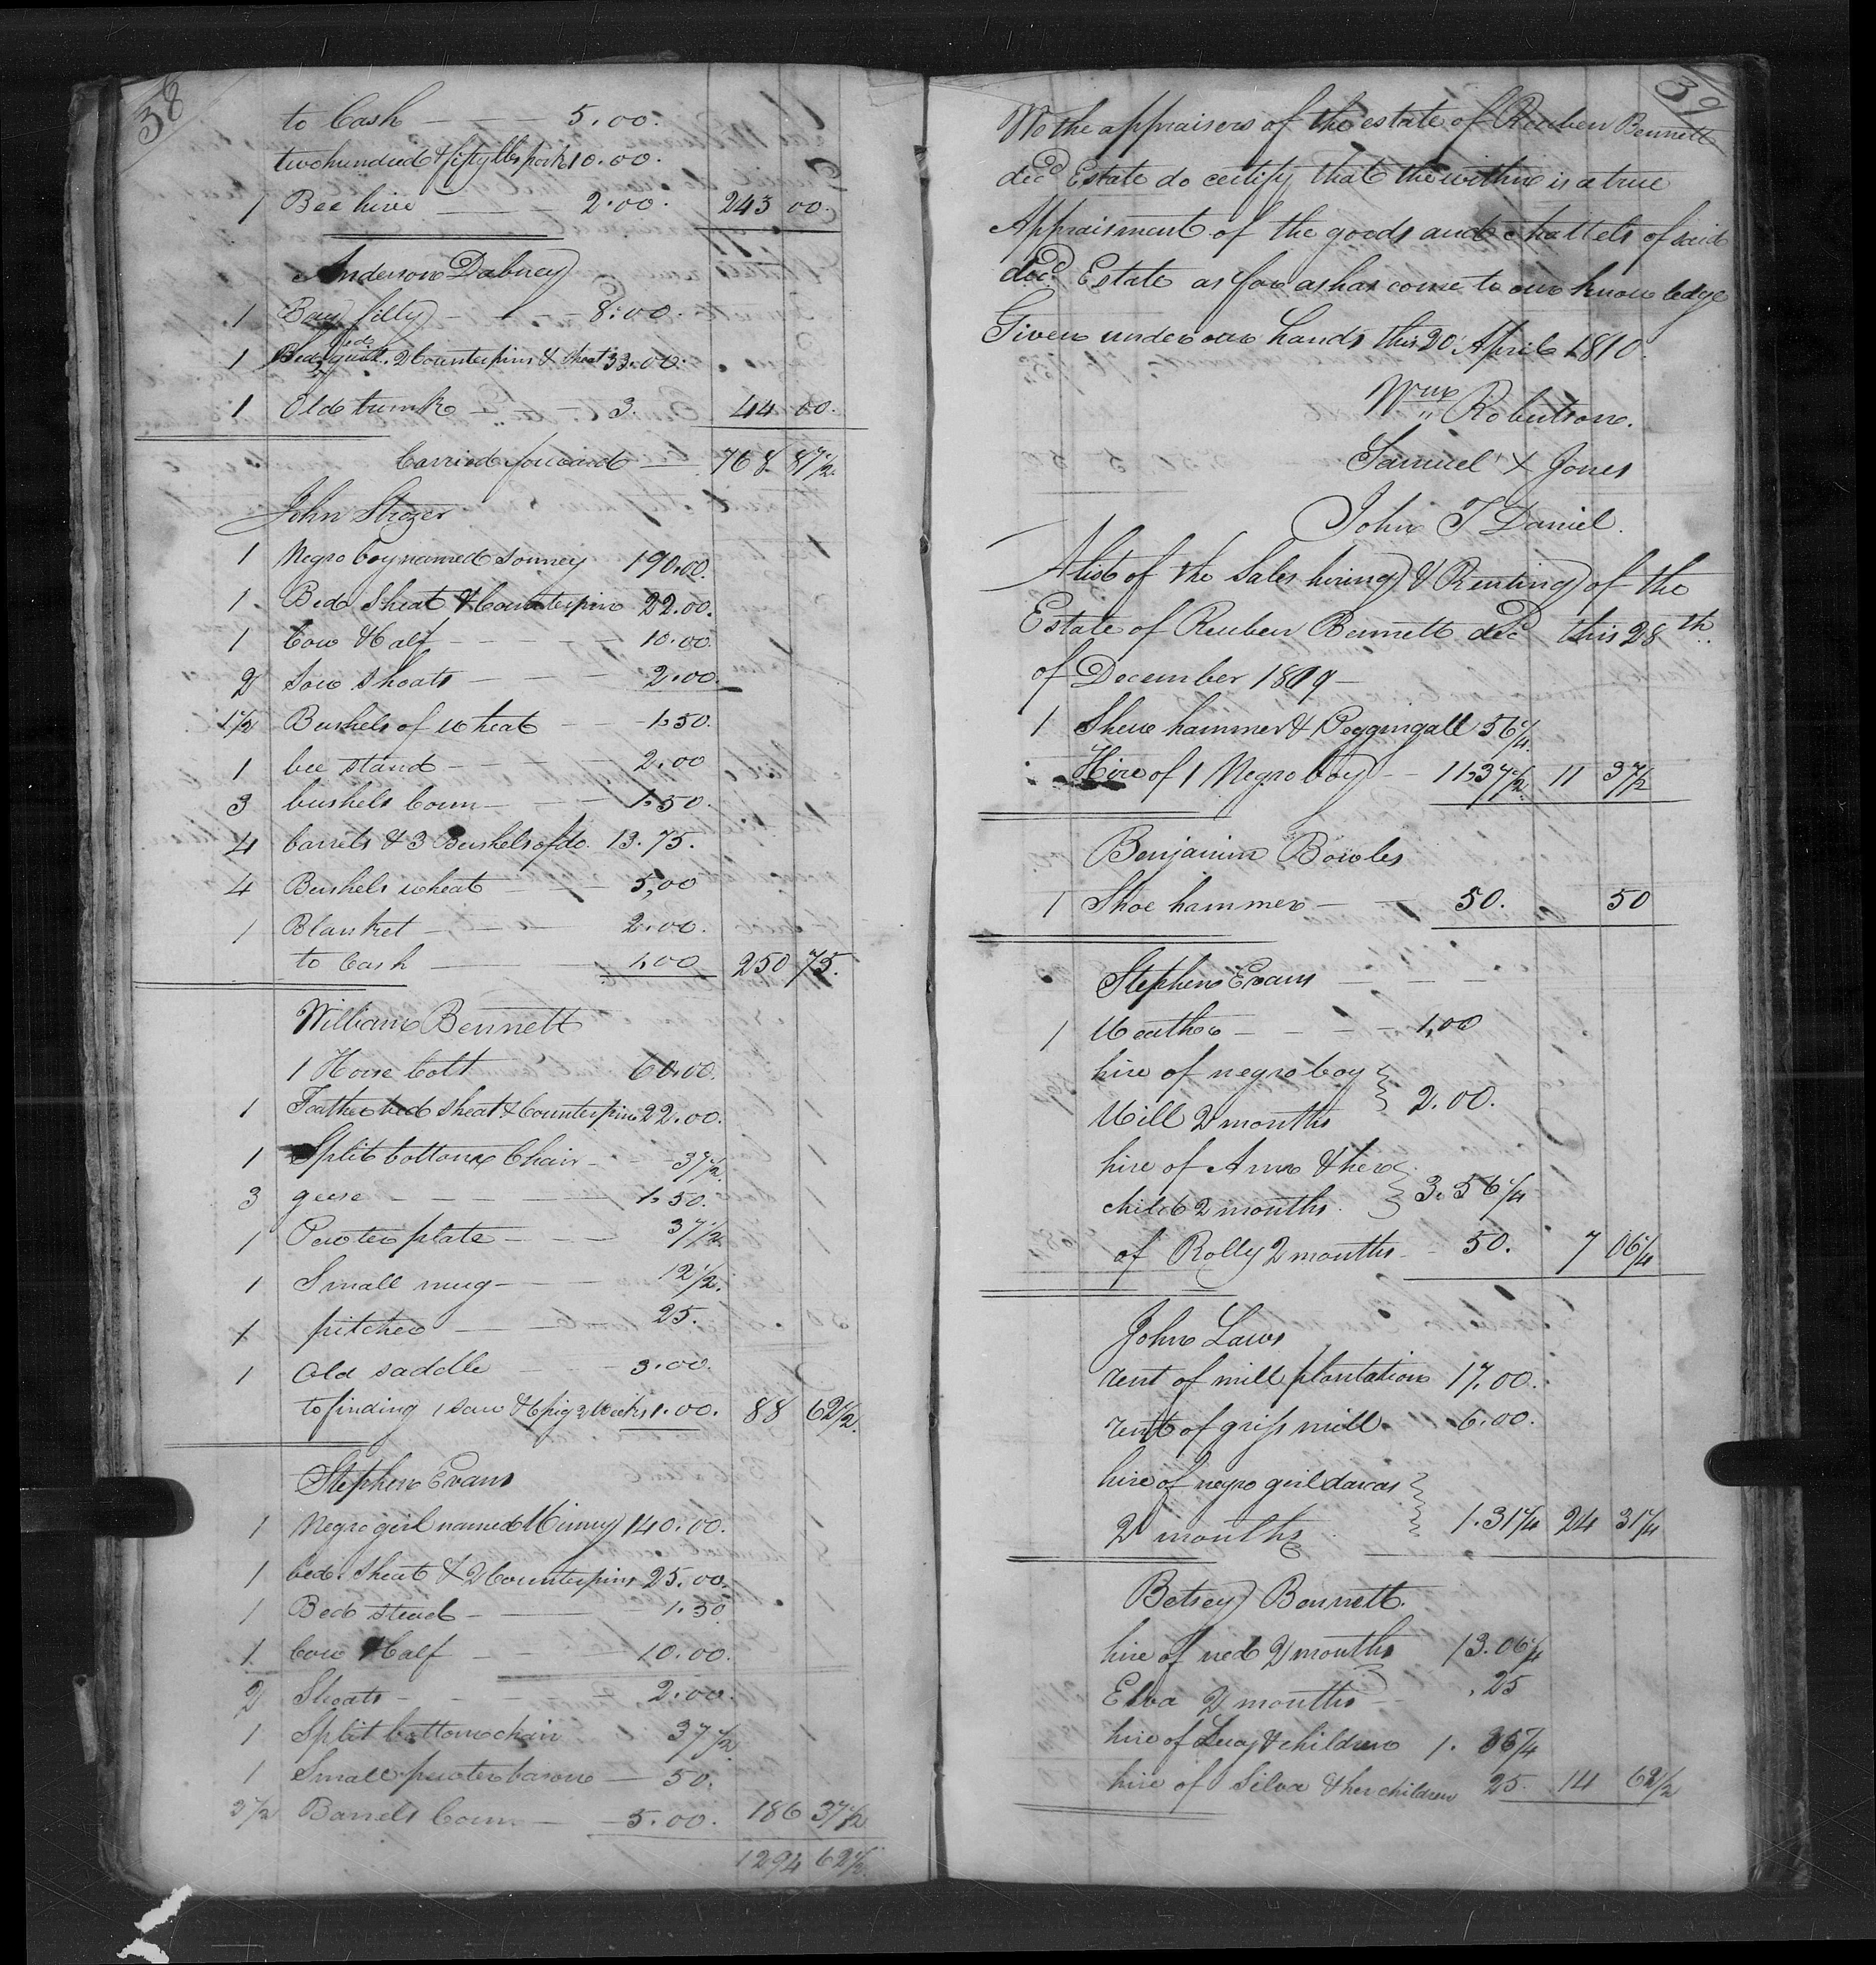 38
to Cash — — — 5.00.
two hundred & fifty lbs pork 10.00.
1 Bee hive — — — 2.00. 243 00.
Anderson Dabney
1 Bay filly — — — 8.00.
bed
1 2 Counterpins & Sheat 33.00.
1 Old trunk — — — 3. 44 00.
Carried forward — 768 87 1/2
John Strozer
1 Negro boy named Sonney 190.00.
1 Bed Sheat & Counterpin 22.00.
1 Cow & Calf — — — 10.00.
2 Sow Shoats — — — 2.00.
1 1/2 Bushels of wheat — — 1.50.
1 bee stand — — — 2.00
3 bushels Corn — — — 1.50.
4 barrels & 3 Bushels of do. 13.75.
4 Bushels wheat — — 5,00
1 Blanket — — — 2.00.
to Cash — — — 1.00 250 75.
William Bennett
1 Horse Colt 60.00.
1 Feather bed sheat & Counterpin 22.00.
1 Split bottom Chair — — 37 1/2
3 geese — — — 1.50.
1 Pewter plate — — — 37 1/2
1 Small mug — — — 12 1/2
1 pitcher — — — 25.
1 Old saddle — — 3.00.
to finding 1 sow & 6 pig 2 Weeks 1.00. 88 62 1/2.
Stephen Evans
1 Negro girl named Minney 140.00.
1 bed. Sheat & 2 Counterpins 25.00.
1 Bed stead — — — 1.50
1 Cow & Calf — — 10.00.
2 Shoats — — — 2.00.
1 Split bottom chair 37 1/2
1 Small pewter bason — 50.
3 1/2 Barrels Corn — — 5.00. 186 37 1/2
1294 62 1/2
39
We the appraisers of the estate of Reuben Bennett
decd Estate do certify that the within is a true
Appraisment of the goods and chattels of said
decd Estate as far as has come to our knowledge
Given under our hands this 20 April 1810.
Wm Robertson.
Samuel X Jones
John T Daniel.
A list of the Sales hiring & Renting of the
Estate of Reuben Bennett decd this 28th
of December 1809 —
1 Shew hammer & Peggingall 56 1/4
Hire of 1 Negro boy — — 11.37 1/2 11 37 1/2
Benjamin Bowles
1 Shoe hammer — — 50. 50
Stephen Evans — — —
1 Weather — — — 1,00
hire of negro boy
Will 2 months } 2.00.
hire of Ann & her
child 2 months. } 3.56 1/4
of Rolly 2 months — 50. 7 06 1/4
John Laws
rent of mill plantation 17.00.
rent of griss mill 6.00.
hire of negro girl darcas
2 months } 1.31 1/4 24 31 1/4
Betsey Bennett.
hire of ned 2 months 13.06 1/4
Elva 2 months — .25
hire of Lucy & children 1.
hire of Silva & her children 25. 14 62 1/2